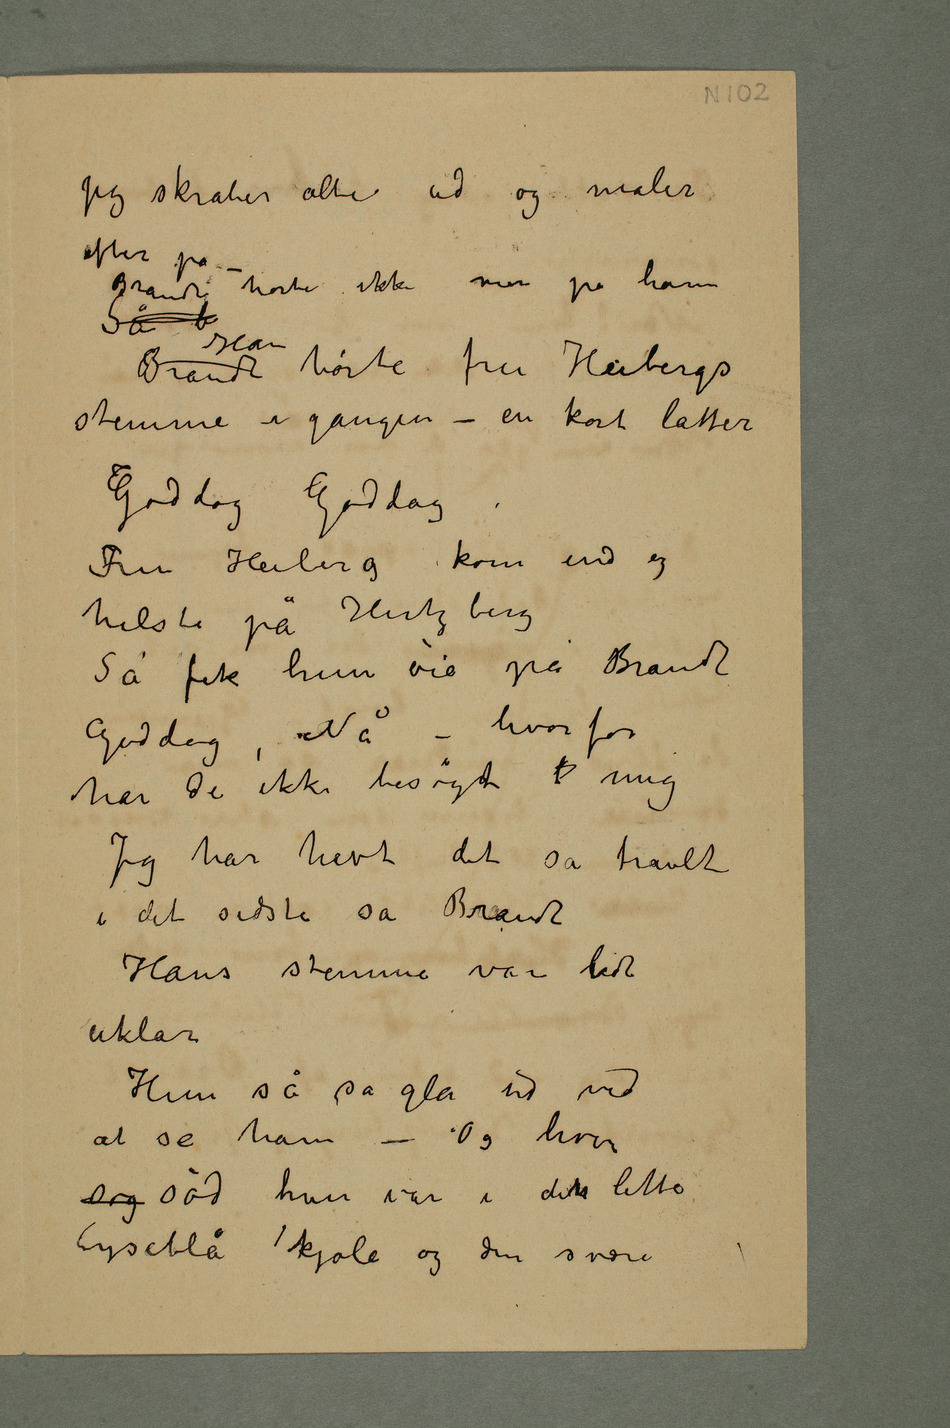 N 102
Jeg skraber alte ud og maler
efter på –
Brandt hørte ikke mer på ham
Så b
Han
Brandt hørte fru Heibergs
stemme i gangen – en kort latter
Goddag Goddag.
Fru Heiberg kom ind og
hilste på Hertzberg
Så fik hun øie på Brandt
Goddag, Nå – hvorfor
har de ikke besøgt mig
Jeg har havt det så travlt
i det sidste sa Brandt
Hans stemme var lidt
uklar
Hun så så gla ud ved
at se ham – Og hvor
sog sød hun var i den lette
lyseblå kjole og den svære